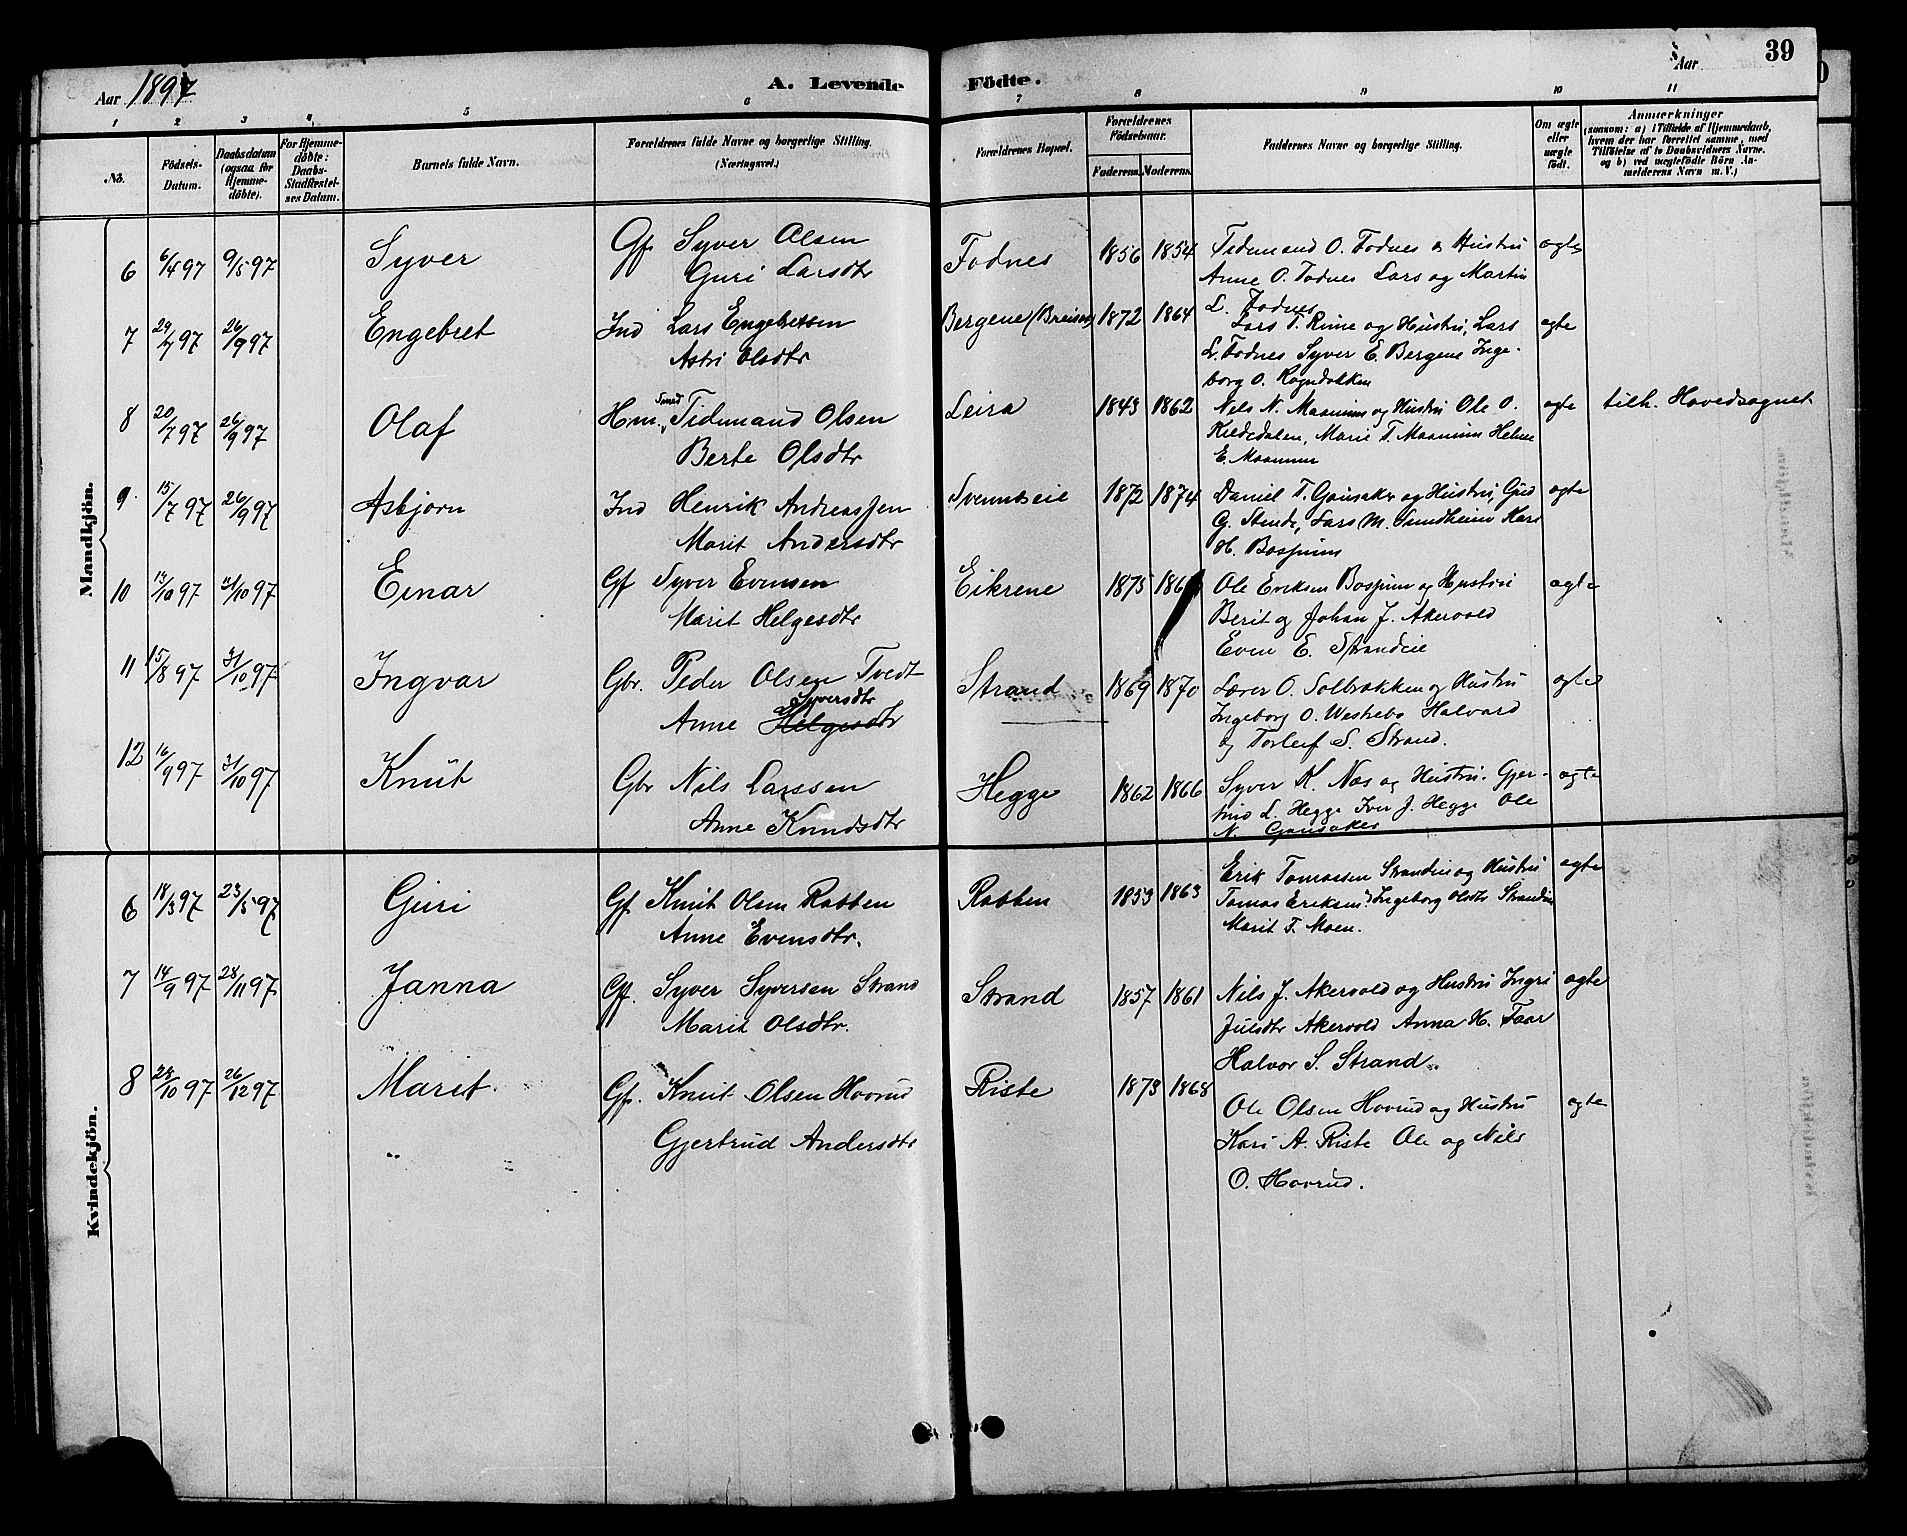 Aar 1897 A. Levende Fødte. Aar 39
1 2 3 4 5 6 7 8 9 10 11
No. Födsels-Datum. Daabsdatum (ogsaa for Hjemme-döbte). For Hjemme-döbte: Daabs-Stadfæstel-ses Datum. Barnets fulde Navn. Forældrenes fulde Navne og borgerlige Stilling. (Næringsvei.) Forældrenes Bopæl. Forældrenes Födselsaar. Faderens. Moderens. Faddernes Navne og borgerlige Stilling. Om ægte eller uægte født. Anmærkninger (saasom: a) i Tilfælde af Hjemmedaab, hvem der har forrettet samme, med Tilføielse af to Daabsvidners Navne, og b) ved uægtefödte Börn Anmelderens Navn m. V.)
Mandkjön.
6 6/4 97 9/5 97 Syver Gf. Syver Olsen Fodnes 1856 1854 Tidemand O. Fodnes og Hustru ægte
Guri Larsdtr Anne O. Fodnes Lars og Martin
L. Fodnes
7 29/7 97 26/9 97 Engebret Ind Lars Engebretsen Bergene 1872 1864 Lars T. Rime og Hustru, Lars ægte
Astri Olsdtr L. Fodnes Syver E. Bergene Inge-
borg O. Rogndokken
8 20/7 97 26/9 97 Olaf Hm. Smed Tidemand Olsen Leira 1843 1862 Nils N. Maanum og Hustru Ole O. ægte tilh. Hovedsognet
Berte Olsdtr Kildedalen, Marie T. Maanum Helene
E. Maanum
9 15/7 97 26/9 97 Asbjørn Ind Henrik Andreassen Svennseie 1872 1874 Daniel T. Gonsaker og Hustru, Gud ægte
Marit Andersdtr G. Stende, Lars M. Sundheim Kari
H. Bosjum
10 13/10 97 31/10 97 Einar Gf Syver Evensen Eikrene 1875 Ole Eriksen Bosjum og Hustru ægte
Marit Helgesdtr Berit og Johan J. Akervold
Even E. Strandeie
11 15/8 97 31/10 97 Ingvar Gbr. Peder Olsen Tvedt Strand 1869 1870 Lærer O. Solbrækken og Hustru ægte
Anne Helgesdtr Syversdtr Ingeborg O. Westrebø Halvard
og Torleif S. Strand.
12 16/9 97 31/10 97 Knut Gbr Nils Larssen Hegge 1862 1866 Syver K. Næs og Hustru. Gjer- ægte
Anne Knudsdtr trud L. Hegge Iver J. Hegge Ole
N. Gonsaker
Kvindekjön.
6 18/3 97 23/5 97 Guri Gf Knut Olsen Rabben Rabben 1853 1863 Erik Tomassen Strandeie og Hustru ægte
Anne Evensdtr. Tomas Eriksen Ingeborg Olsdtr Strandeie
Marit T. Moen.
7 14/9 97 28/11 97 Janna Gf. Syver Syversen Strand Strand 1857 1861 Nils J. Akervold og Hustru Ingri ægte
Marit Olsdtr. Julsdtr Akervold Anna H. Faar
Halvor S. Strand.
8 28/10 97 26/12 97 Marit Gf. Knut Olsen Hovrud Riste 1873 1868 Ole Olsen Hovrud og Hustru ægte
Gjertrud Andersdtr Kari A. Riste Ole og Nils
O. Hovrud.